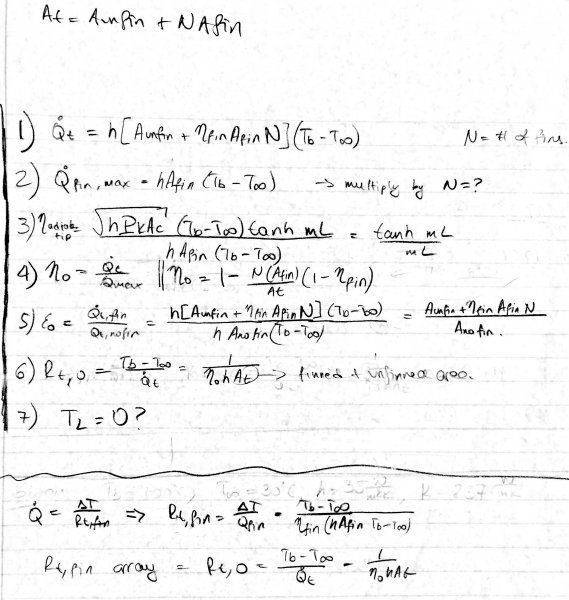 At = Aunfin + NAfin
1) Q̇t = h[Aunfin + ηfinAfinN](Tb-T∞) N = # of fins.
2) Q̇fin,max = hAfin (Tb-T∞) → multiply by N=?
3) ηadiab tip √hPkAc (Tb-T∞) tanh mL / hAfin (Tb-T∞) = tanh mL / mL
4) ηo = Q̇t / Q̇max || ηo = 1 - N(Afin) / At (1-ηfin)
5) εo = Q̇t,fin / Q̇t,nofin = h[Aunfin + ηfin AfinN] (Tb-T∞) / h Anofin(Tb-T∞) = Aunfin + ηfin Afin N / Anofin.
6) Rt,o = Tb-T∞ / Q̇t = 1 / ηohAt → finned + unfinned area.
7) TL = 0?
Q̇ = ΔT / Rt,fin ⇒ Rt,fin = ΔT / Q̇fin = Tb-T∞ / ηfin(hAfin Tb-T∞)
Rt,fin array = Rt,o = Tb-T∞ / Q̇t = 1 / ηohAt